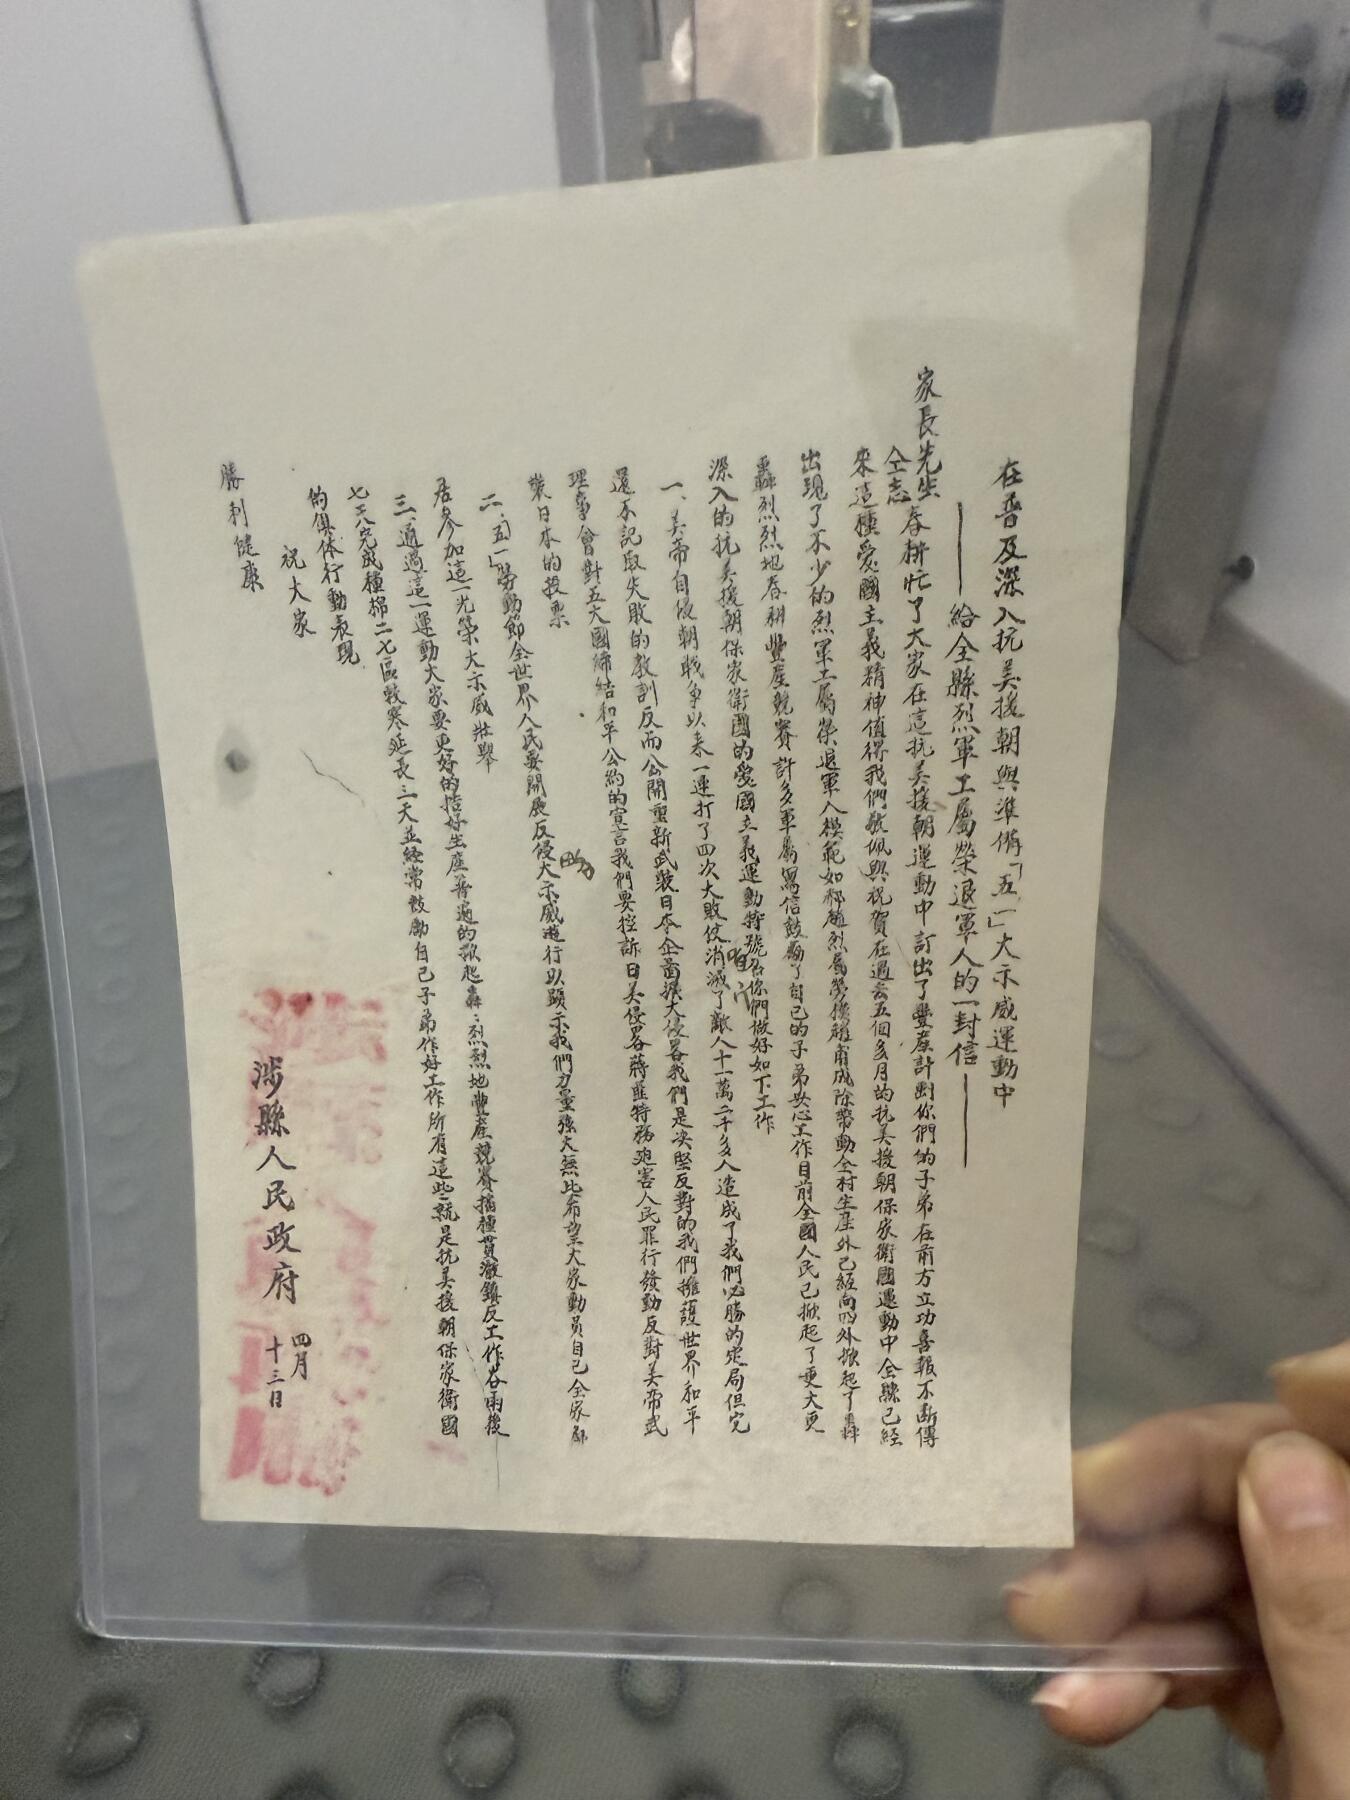 在普及深入抗美援朝與準備「五一」大示威運動中
——給全縣烈軍工屬榮退軍人的一封信——
家長先生
仝志
春耕忙了大家在這抗美援朝運動中訂出了豐產計劃你們的子弟在前方立功喜報不斷傳
來這種愛國主義精神值得我們敬佩與祝賀在過去五個多月的抗美援朝保家衛國運動中全縣已經
出現了不少的烈軍工屬榮退軍人模範如郝 烈屬勞 成除帶動全村生產外已經向四外掀起了轟
轟烈烈地春耕豐產競賽許多軍屬寫信鼓勵了自己的子弟安心工作目前全國人民已掀起了更大更
深入的抗美援朝保家衛國的愛國主義運動特號召你們做好如下工作
一、美帝自侵朝戰爭以來一連打了四次大敗仗消滅了敵人十一萬二千多人造成了我們必勝的定局但它
還不記取失敗的教訓反而公開重新武裝日本企圖擴大侵畧我們是决堅反對的我們擁護世界和平
理事會對五大國締結和平公約的宣言我們要控訴日美侵畧蔣匪特務 害人民罪行發動反對美帝武
裝日本的投票
二、「五一」勞動節全世界人民要開展反侵大示威遊行以顯示我們力量強大無比希望大家動員自己全家鄰
居參加這一光榮大示威壯舉
三、通過這一運動大家要更好的搞好生產普遍的掀起轟:烈烈地豐產競賽播種貫澈鎮反工作谷雨後
七天八完成種棉二七區較寒延長三天並經常鼓勵自己子弟作好工作所有這些就是抗美援朝保家衛國
的俱体行動表現
祝大家
勝利健康
涉縣人民政府
四月
十三日